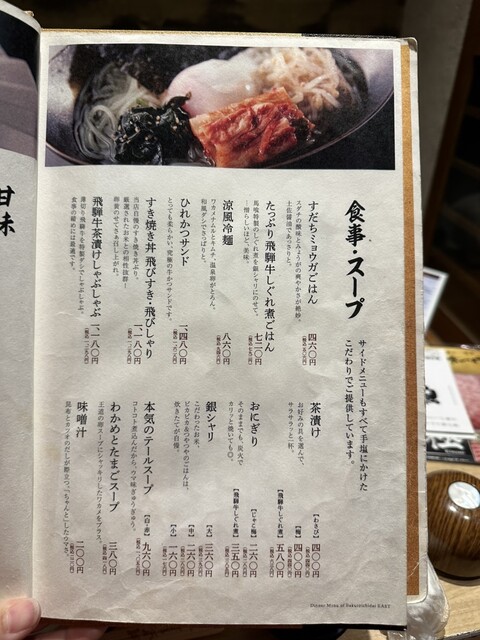 食事・スープ
サイドメニューもすべて手塩にかけた
こだわりでご提供しています。
すだちミョウガごはん
スダチの酸味とみょうがの爽やかさが絶妙。
土佐醤油であっさりと。
四六〇円
たっぷり飛騨牛しぐれ煮ごはん
馬喰特製のしぐれ煮を銀シャリにのせて。
一悄らしいほど、美味。
七二〇円
涼風冷麺
ワカメナムルとキムチ、温泉卵がとろん。
和風ダシでさっぱりと。
八六〇円
ひれかつサンド
とっても柔らかい、究極の牛かつサンドです。
一、四八〇円
すき焼き丼 飛びすき・飛びしゃり
当店自慢のすき焼き丼ぶり。
厳選されたお米との相性抜群！
卵黄のせてさあ召し上がれ。
一、一八〇円
飛騨牛茶漬けしゃぶしゃぶ
薄切り飛騨牛を特製ダシでしゃぶしゃぶ。
食事の締めには最適です。
一、一八〇円
茶漬け
お好みの具を選んで、
サラサラ〜と一杯。
【わさび】
四〇〇円
【梅】
四〇〇円
【飛騨牛しぐれ煮】
五八〇円
おにぎり
そのままでも、炭火で
カリッと焼いても◎。
【じゃこ梅】
二六〇円
【飛騨牛しぐれ煮】
三五〇円
銀シャリ
こだわったお米。
ピカピカ&つやつやのごはんは、
炊きたてが自慢。
【大】
三六〇円
【中】
二六〇円
【小】
一六〇円
本気のテールスープ
コトコト煮込んだから、ウマ味ぎゅうぎゅう。
【白・赤】
九六〇円
わかめとたまごスープ
王道の卵スープにシャッキリしたワカメをプラス。
三八〇円
味噌汁
昆布とカツオのだしが際立つ、“ちゃんと”したウマさ。
二〇〇円
甘味